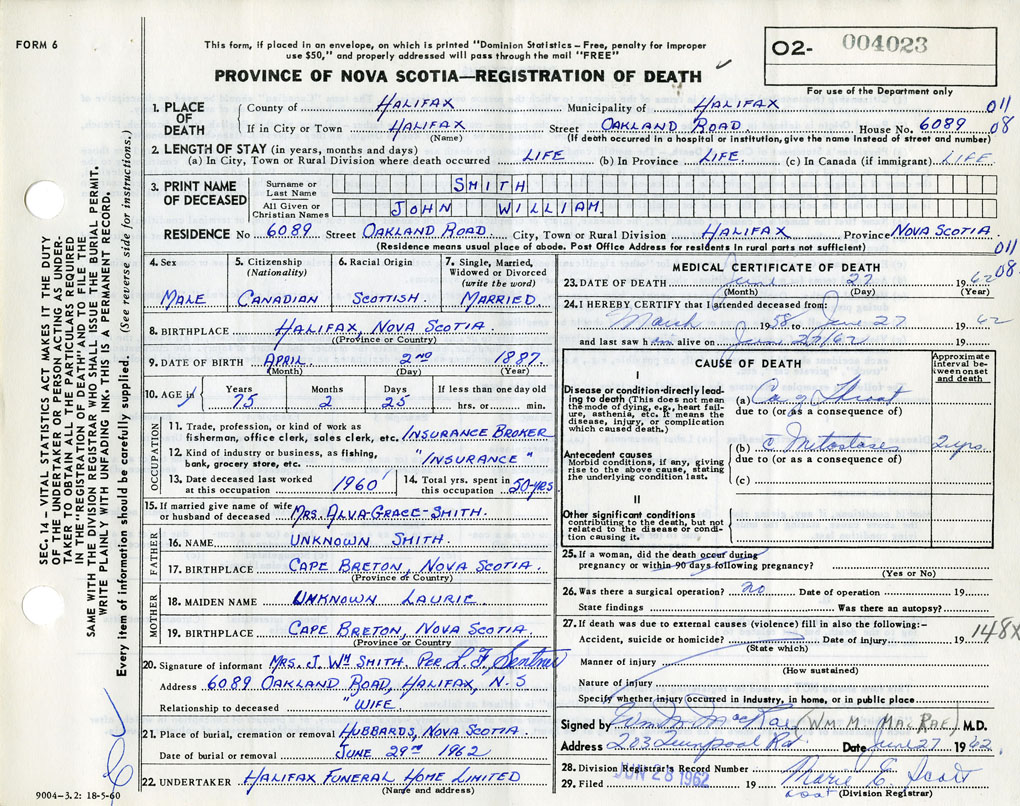 FORM 6
This form, if placed in an envelope, on which is printed "Dominion Statistics – Free, penalty for improper
use $50," and properly addressed will pass through the mail "FREE"
PROVINCE OF NOVA SCOTIA—REGISTRATION OF DEATH
O2- 004023
For use of the Department only
SEC. 14 – VITAL STATISTICS ACT MAKES IT THE DUTY
OF THE UNDERTAKER OR PERSON ACTING AS UNDER-
TAKER TO OBTAIN ALL THE PARTICULARS REQUIRED
IN THE "REGISTRATION OF DEATH" AND TO FILE THE
SAME WITH THE DIVISION REGISTRAR WHO SHALL ISSUE THE BURIAL PERMIT.
WRITE PLAINLY WITH UNFADING INK. THIS IS A PERMANENT RECORD.
Every item of information should be carefully supplied. (See reverse side for instructions.)
1. PLACE OF DEATH
County of HALIFAX Municipality of HALIFAX 011
If in City or Town HALIFAX Street OAKLAND ROAD House No. 6089 08
(Name) (If death occurred in a hospital or institution, give the name instead of street and number)
2. LENGTH OF STAY (in years, months and days)
(a) In City, Town or Rural Division where death occurred LIFE (b) In Province LIFE. (c) In Canada (if immigrant) LIFE.
3. PRINT NAME OF DECEASED
Surname or Last Name SMITH
All Given or Christian Names JOHN WILLIAM.
RESIDENCE No 6089 Street OAKLAND ROAD City, Town or Rural Division HALIFAX Province NOVA SCOTIA
(Residence means usual place of abode. Post Office Address for residents in rural parts not sufficient)
011
08.
4. Sex
MALE
5. Citizenship
(Nationality)
CANADIAN
6. Racial Origin
SCOTTISH.
7. Single, Married,
Widowed or Divorced
(write the word)
MARRIED
8. BIRTHPLACE HALIFAX, NOVA SCOTIA.
((Province or Country)
9. DATE OF BIRTH APRIL 2ND 1887.
(Month) (Day) (Year)
10. AGE in Years Months Days If less than one day old
75 2 25 hrs. or min.
OCCUPATION
11. Trade, profession, or kind of work as
fisherman, office clerk, sales clerk, etc. INSURANCE BROKER
12. Kind of industry or business, as fishing,
bank, grocery store, etc. "INSURANCE"
13. Date deceased last worked
at this occupation 1960
14. Total yrs. spent in
this occupation 50 YRS
15. If married give name of wife
or husband of deceased MRS. ALVA-GRACE-SMITH.
FATHER
16. NAME UNKNOWN SMITH.
17. BIRTHPLACE CAPE BRETON, NOVA SCOTIA.
(Province or Country)
MOTHER
18. MAIDEN NAME UNKNOWN LAURIE.
19. BIRTHPLACE CAPE BRETON, NOVA SCOTIA.
(Province or Country)
20. Signature of informant MRS. J. WM SMITH. PER L. F.
Address 6089 OAKLAND ROAD, HALIFAX, N.S
Relationship to deceased "WIFE.
21. Place of burial, cremation or removal HUBBARDS, NOVA SCOTIA
Date of burial or removal JUNE 29TH 1962
22. UNDERTAKER HALIFAX FUNERAL HOME LIMITED
(Name and address)
9004-3.2: 18-5-60
MEDICAL CERTIFICATE OF DEATH
23. DATE OF DEATH June 27 1962
(Month) (Day) (Year)
24. I HEREBY CERTIFY that I attended deceased from:
March 1958 to June 27 1962
and last saw him alive on June 27/62 19
CAUSE OF DEATH
Approximate interval between onset and death
I
Disease or condition directly lead-
ing to death (This does not mean
the mode of dying, e.g., heart fail-
ure, asthenia, etc. It means the
disease, injury, or complication
which caused death.)
(a) Ca of Throat
due to (or as a consequence of)
Antecedent causes
Morbid conditions, if any, giving
rise to the above cause, stating
the underlying condition last.
(b) c̄ 2 yrs.
due to (or as a consequence of)
(c)
II
Other significant conditions
contributing to the death, but not
related to the disease or condition
causing it.
25. If a woman, did the death occur during
pregnancy or within 90 days following pregnancy?
(Yes or No)
26. Was there a surgical operation? no Date of operation 19
State findings Was there an autopsy?
27. If death was due to external causes (violence) fill in also the following:-
Accident, suicide or homicide? Date of injury 19
(State which)
148X
Manner of injury
(How sustained)
Nature of injury
Specify whether injury occurred in industry, in home, or in public place
Signed by Wm M MacRae (WM. M. MACRAE). M.D.
Address 203 Quinpool Rd Date June 27 1962.
28. Division Registrar's Record Number
29. Filed JUN 28 1962 19 Marie E. Scott
(Division Registrar)